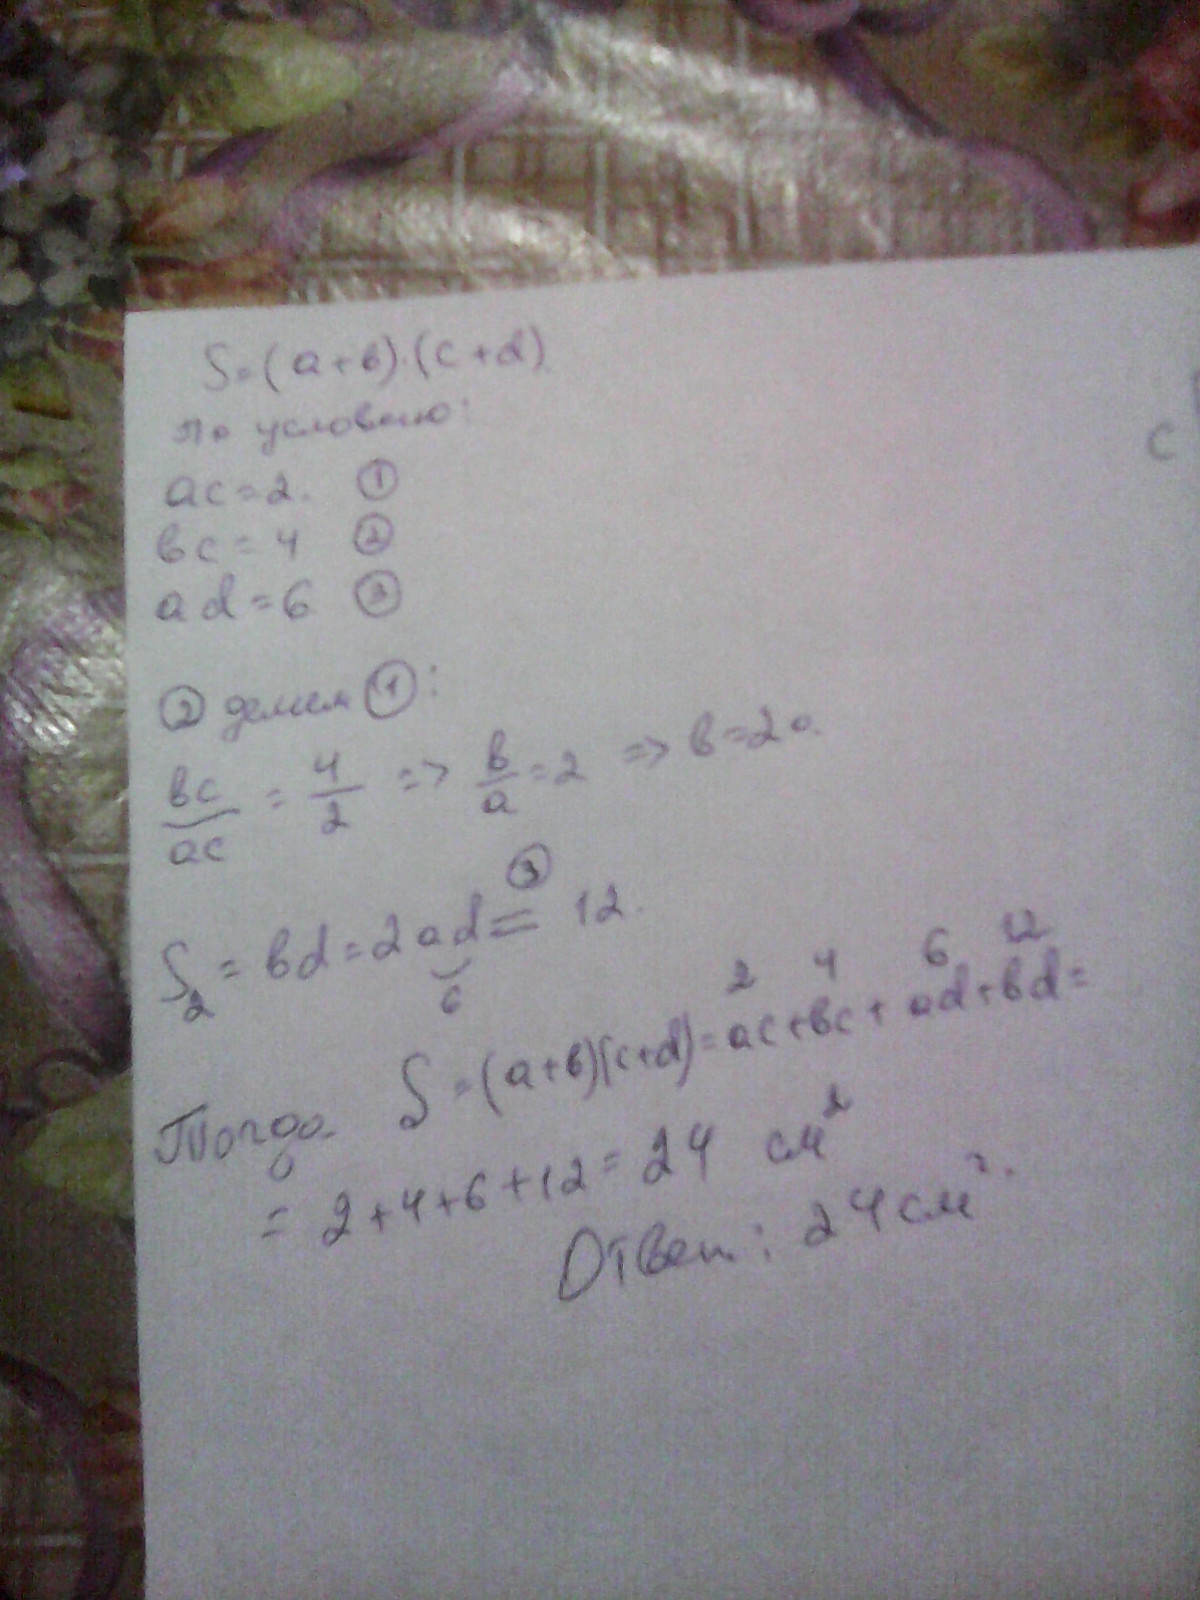 S=(a+b)·(c+d)
По условию:
ac=2. ①
bc=4 ②
ad=6 ③
② делим ①:
bc/ac = 4/2 => b/a=2 => b=2a.
③
S₂=bd=2ad= 12.
6
2 4 6 12
Тогда S=(a+b)(c+d)=ac+bc+ad+bd=
= 2+4+6+12=24 см²
Ответ: 24см².
c